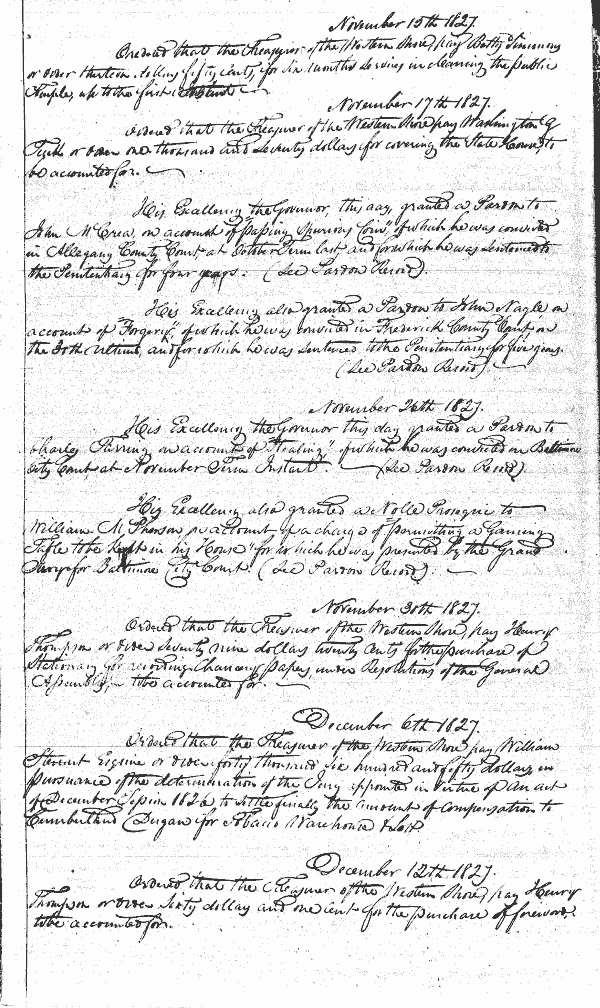 November 15th 1827.
Ordered that the Treasurer of the Western Shore pay Betty Timmons
or order thirteen dollars fifty cents, for six months services in cleaning the public
Temple, up to the first
November 17th 1827.
Ordered that the Treasurer of the Western Shore pay Washington G
Tuck or order one thousand and seventy dollars for covering the State House, to
be accounted for.
His Excellency the Governor, this day, granted a Pardon to
John McCrea, on account of "passing Spurious Coin", of which he was convicted
in Allegany County Court at October Term last and for which he was sentenced to
the Penitentiary for four years. (See Pardon Record).
His Excellency also granted a Pardon to John Nagle on
account of "Forgery" of which he was convicted in Frederick County Court on
the 30th ultimo, and for which he was sentenced to the Penitentiary for five years.
(See Pardon Record).
November 26th 1827.
His Excellency the Governor this day granted a Pardon to
Charles on account of "Stealing" of which he was convicted in Baltimore
City Court at November Term Instant. (See Pardon Record)
His Excellency also granted a Nolle Prosequi to
William McPherson on account of a charge of "permitting a Gaming
Table to be Kept in his House" for which he was presented by the Grand
Jury for Baltimore City Court. (See Pardon Record).
November 30th 1827.
Ordered that the Treasurer of the Western Shore, pay Henry
Thompson or order seventy nine dollars twenty cents for the purchase of
Stationary for recording Chancery papers, under Resolutions of the General
Assembly, to be accounted for.
December 6th 1827.
Ordered that the Treasurer of the Western Shore pay William
Stewart Esquire or order forty thousand six hundred and fifty dollars in
pursuance of the determination of the Jury appointed in virtue of an act
of December Session 1826 to settle finally the amount of compensation to
Cumberland Dugan for Tobacco Warehouse & Lot
December 12th 1827.
Ordered that the Treasurer of the Western Shore, pay Henry
Thompson or order sixty dollars and one cent for the purchase of firewood,
to be accounted for.